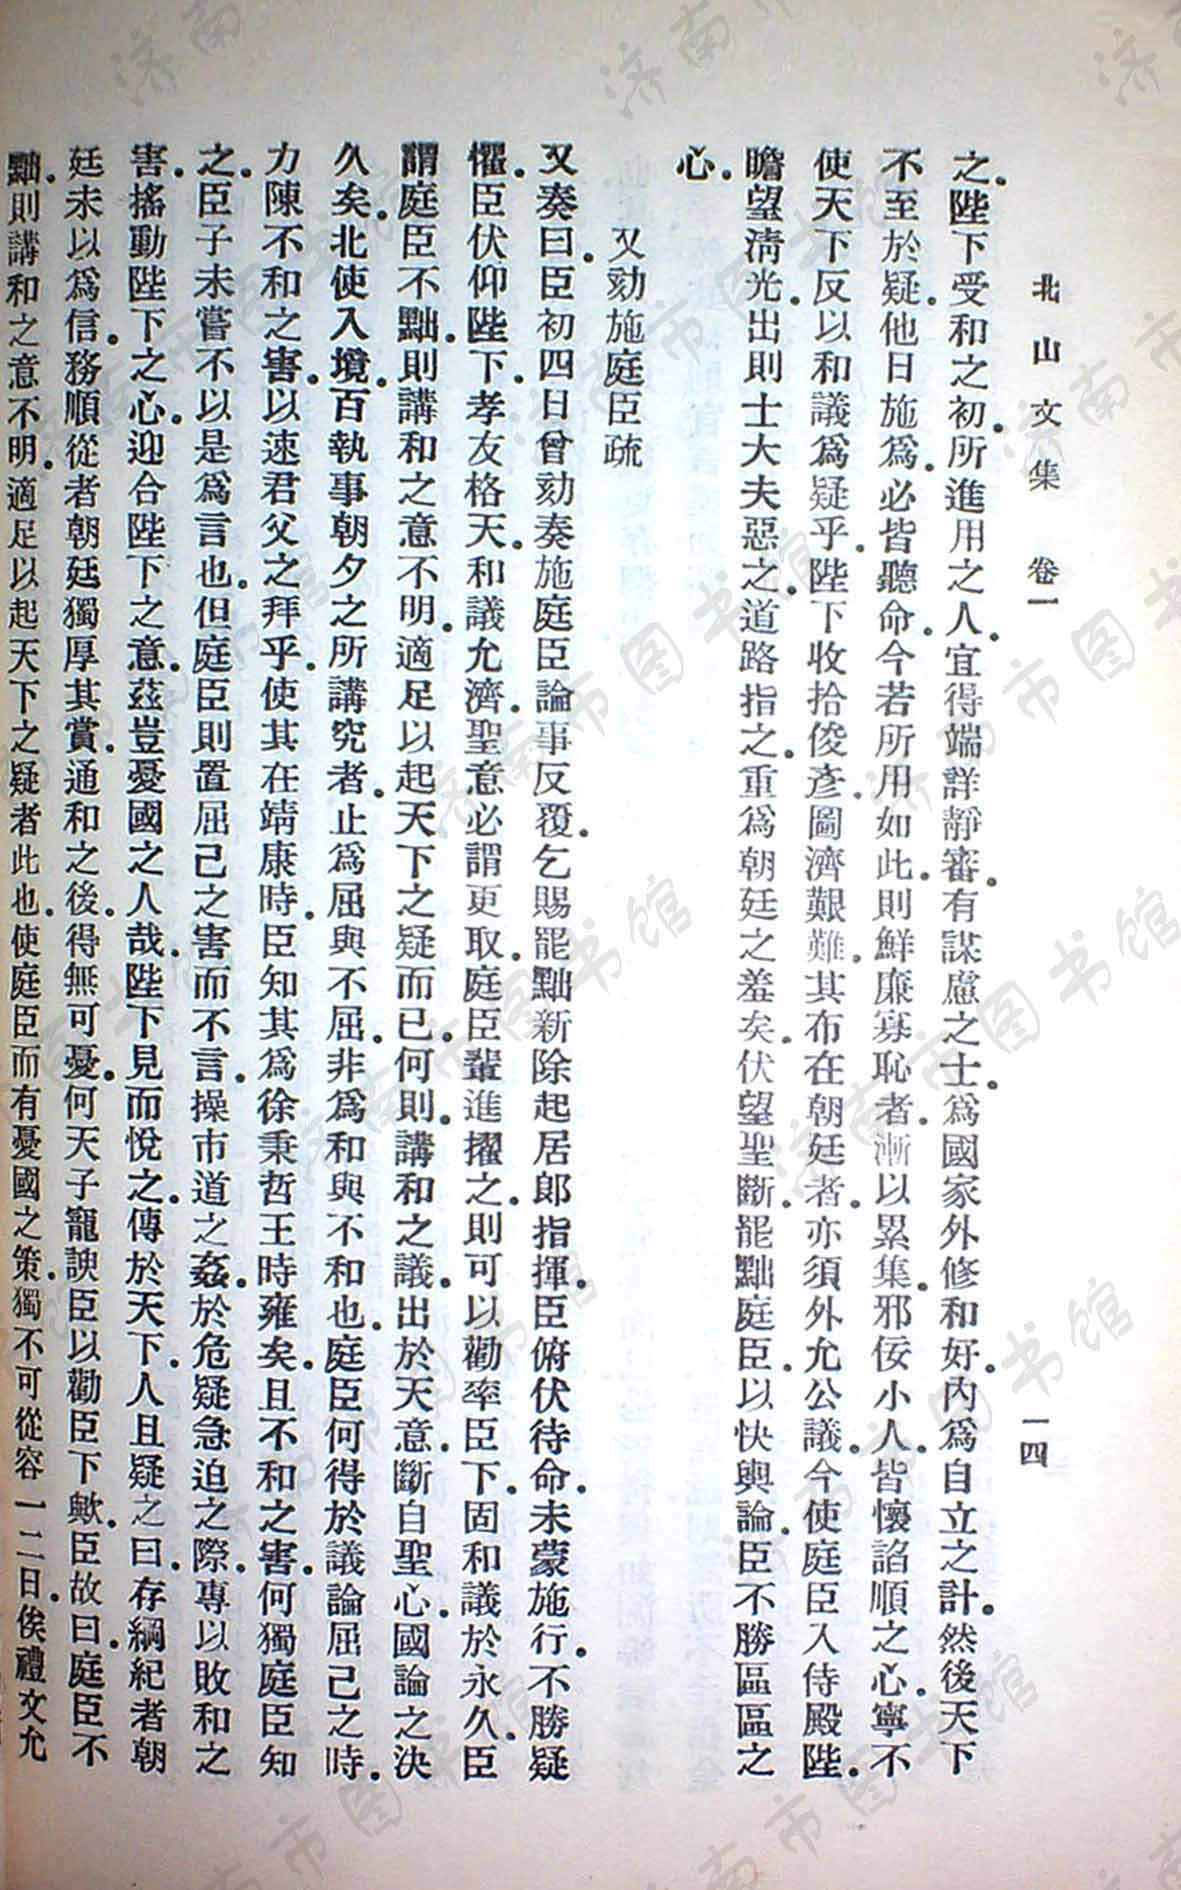 北山文集 卷一 一四
之。陛下受和之初。所進用之人。宜得端詳靜審。有謀慮之士。爲國家外修和好。內爲自立之計。然後天下
不至於疑。他日施爲。必皆聽命。今若所用如此。則鮮廉寡恥者。漸以累集。邪佞小人。皆懷諂順之心。寧不
使天下反以和議爲疑乎。陛下收拾俊彥。圖濟艱難。其布在朝廷者。亦須外允公議。今使庭臣入侍殿陛。
瞻望淸光。出則士大夫惡之。道路指之。重爲朝廷之羞矣。伏望聖斷。罷黜庭臣。以快輿論。臣不勝區區之
心。
又劾施庭臣疏
又奏曰。臣初四日曾劾奏施庭臣論事反覆。乞賜罷黜新除起居郞指揮。臣俯伏待命。未蒙施行。不勝疑
懼。臣伏仰陛下。孝友格天。和議允濟。聖意必謂更取庭臣輩進擢之。則可以勸率臣下。固和議於永久。臣
謂庭臣不黜。則講和之意不明。適足以起天下之疑而已。何則。講和之議。出於天意。斷自聖心。國論之決
久矣。北使入境。百執事朝夕之所講究者。止爲屈與不屈。非爲和與不和也。庭臣何得於議論屈己之時。
力陳不和之害。以速君父之拜乎。使其在靖康時。臣知其爲徐秉哲王時雍矣。且不和之害。何獨庭臣知
之。臣子未嘗不以是爲言也。但庭臣則置屈己之害而不言。操市道之姦。於危疑急迫之際。專以敗和之
害。搖動陛下之心。迎合陛下之意。茲豈憂國之人哉。陛下見而悅之。傳於天下。人且疑之曰。存綱紀者朝
廷未以爲信。務順從者朝廷獨厚其賞。通和之後。得無可憂。何天子寵諛臣以勸臣下歟。臣故曰。庭臣不
黜。則講和之意不明。適足以起天下之疑者此也。使庭臣而有憂國之策。獨不可從容一二日俟禮文允